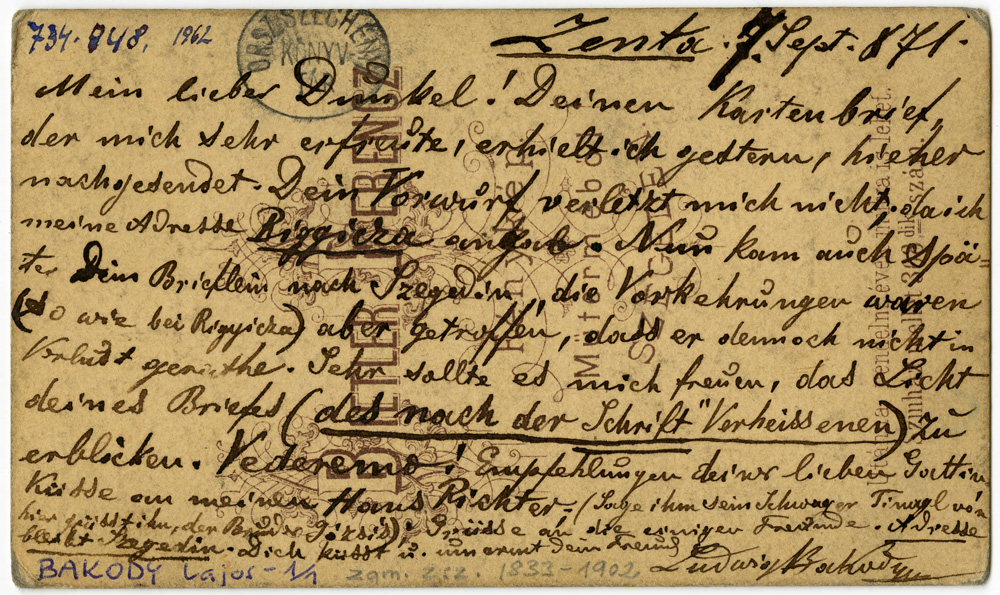 734. 848. 1962
ORSZ. SZÉCHÉNYI KÖNYV
Zenta. 7 Sept. 871.
Mein lieber Dunkel! Deinen Kartenbrief,
der mich sehr erfreute, erhielt ich gestern, hieher
nachgesendet. Dein Vorwurf verletzt mich nicht, da ich
meine Adresse Riggicza angab. Nun kam auch spä-
ter Dein Brieflein nach Szegedin, die Vorkehrungen waren
(so wie bei Rigyicza) aber getroffen, dass er dennoch nicht in
Verlust gerathe. Sehr sollte es mich freuen, das Licht
deines Briefes (des nach der Schrift "Verheissenen) zu
erblicken. Vederemo! Empfehlungen deiner lieben Gattin,
Küsse an meinen Hans Richter - (Sage ihm sein Schwager von
hier grüsst ihn, der Bruder); Grüsse an die einigen Freunde. Adresse
bleibt Szegedin. Dich küsst u. umarmt dein Freund
Ludwig Bakody
BAKODY Lajos - 1/1 zgm. zsz. 1833-1902
BETTLER FERENCZ
Fényképész
Műtermébő
SZEGED